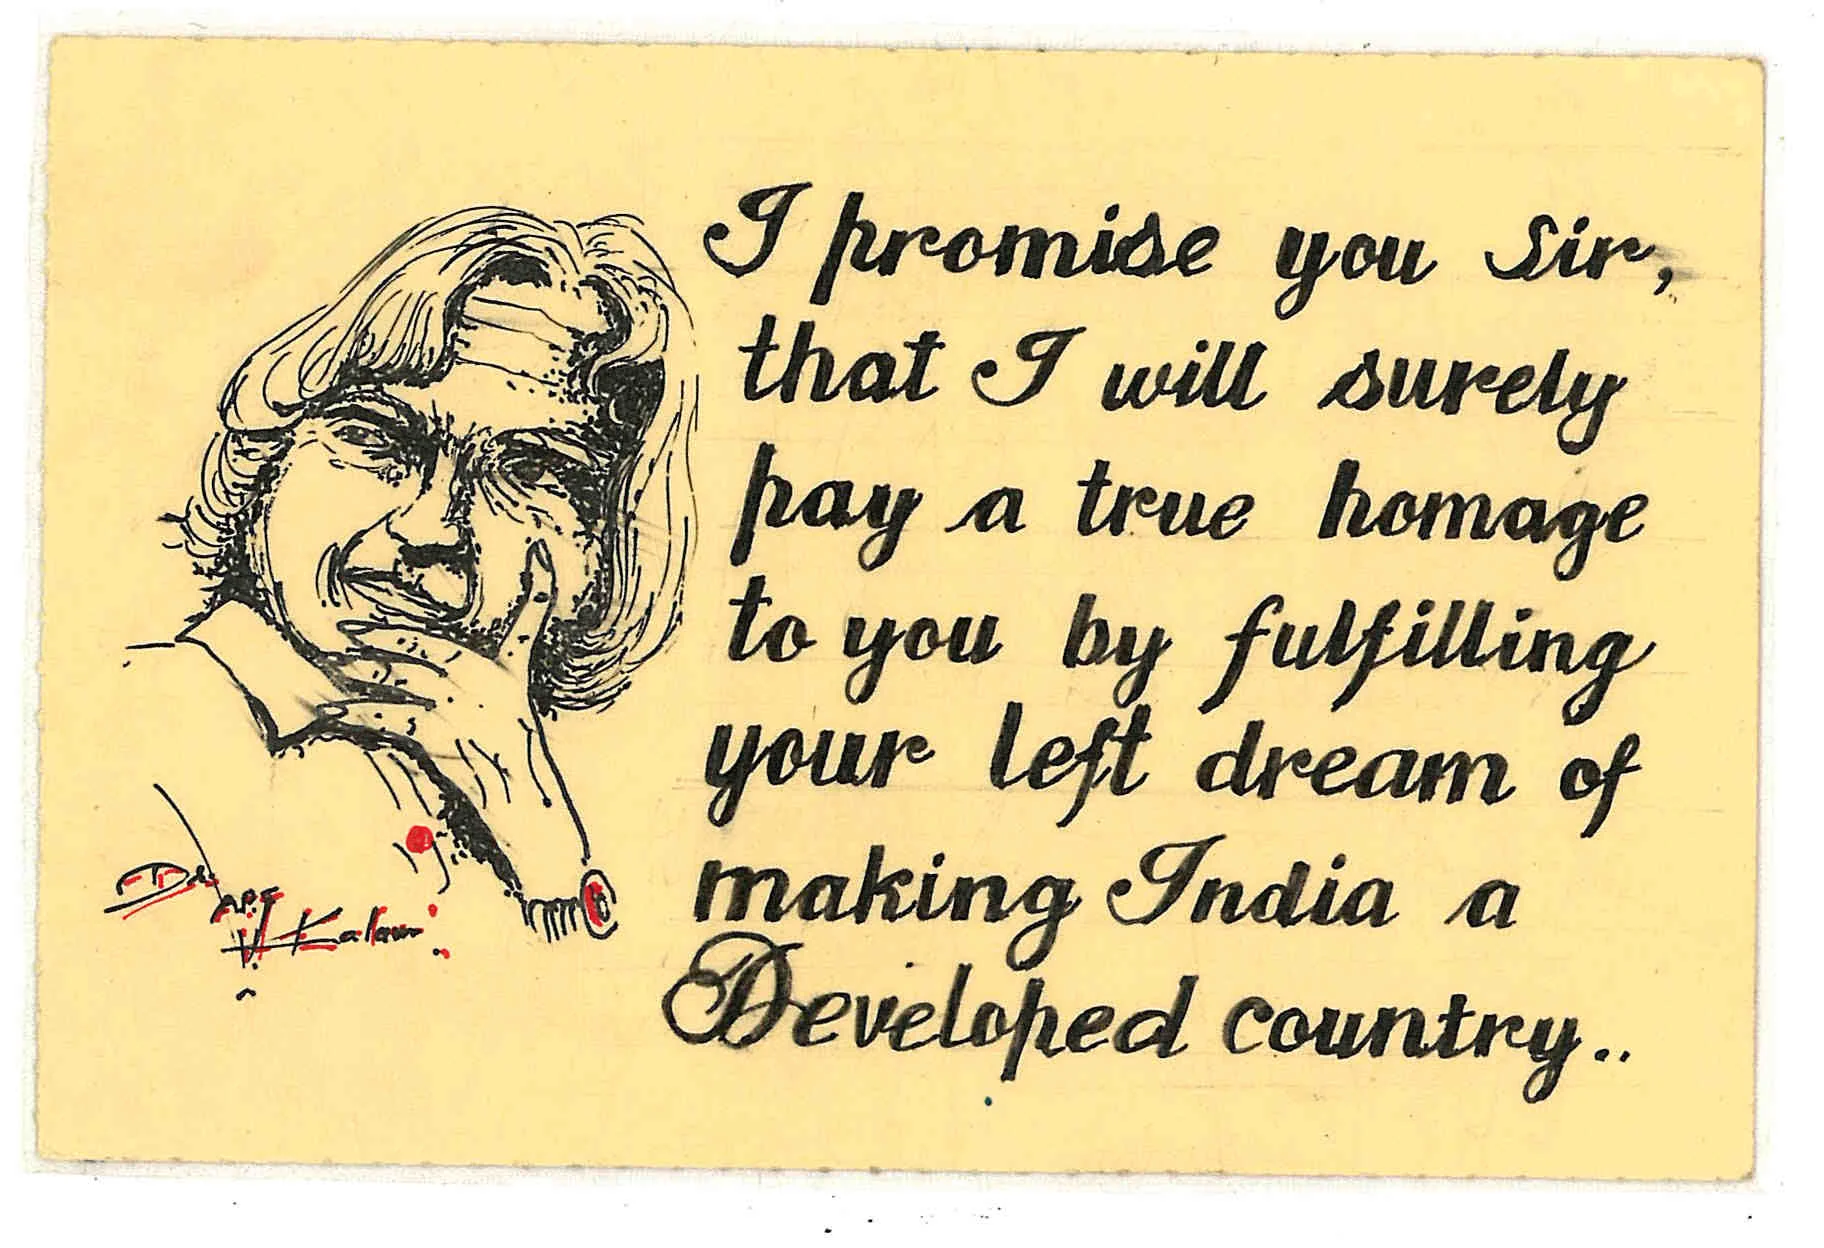 I promise you Sir,
that I will surely
pay a true homage
to you by fulfilling
your left dream of
making India a
Developed country..
Dr
APJ
Kalam